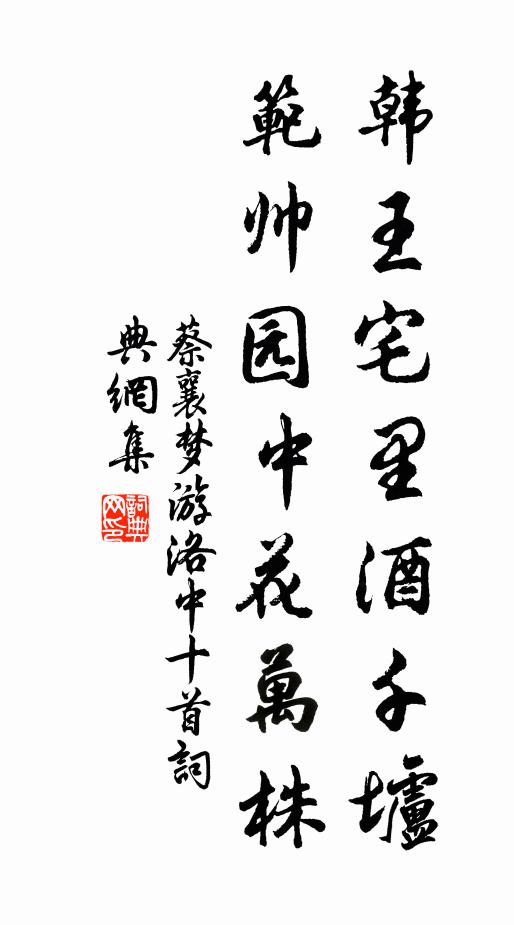 韩王宅里酒千壚
範帅园中花萬株
蔡襄梦游洛中十首詞
典網集
詞典网印